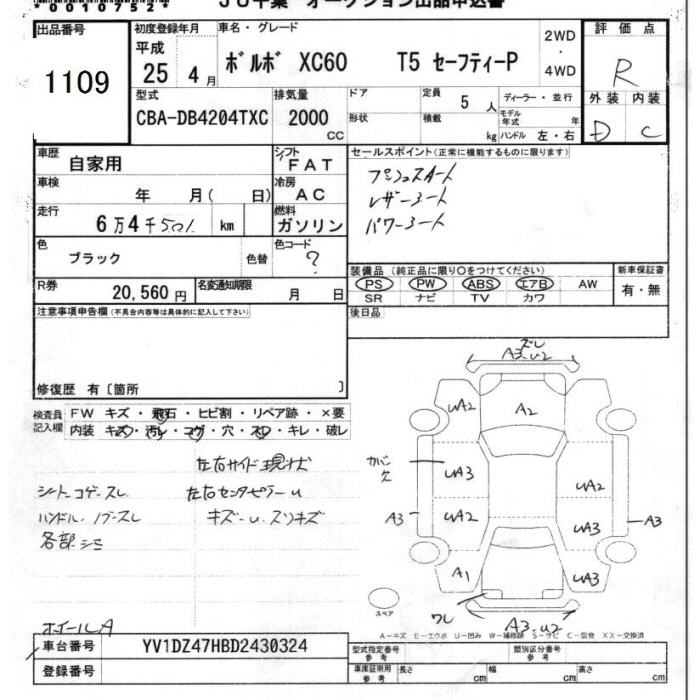 *0010752*
JU千葉 オークション出品申込書
出品番号
1109
初度登録年月
平成
25 4月
車名・グレード
ボルボ XC60 T5 セーフティーP
2WD
・
4WD
評価点
R
外装 内装
D C
型式
CBA-DB4204TXC
排気量
2000
CC
ドア
形状
定員
5 人
積載
kg
ディーラー・並行
モデル年式 年
ハンドル 左・右
車歴
自家用
シフト
FAT
車検
年 月( 日)
冷房
AC
走行
6万4千501 km
燃料
ガソリン
色
ブラック
色替
色コード
?
R券
20,560円
名変通知期限
月 日
セールスポイント(正常に機能するものに限ります)
プッシュスタート
レザーシート
パワーシート
装備品(純正品に限り○をつけてください)
PS PW ABS エアB AW
SR ナビ TV カワ
新車保証書
有・無
後日品
注意事項申告欄(不具合内容等は具体的に記入して下さい)
修復歴 有〔箇所 〕
検査員記入欄
FW キズ・飛石・ヒビ割・リペア跡・×要
内装 キズ・汚レ・コゲ・穴・スレ・キレ・破レ
左右サイド現状
シートコゲ・スレ
左右センターピラーU
ハンドル・ノブ・スレ
キズ・U・スリキズ
各部シミ
ホイールA
ズレ
A3・U2
UA2
A2
カバー欠
UA3
UA2
A3
UA2
UA3
A3
A1
UA3
ワレ
A3・U2
スペア
A-キズ E-エクボ U-凹み W-補修跡 S-サビ C-腐食 XX-交換済
車台番号
YV1DZ47HBD2430324
登録番号
型式指定番号
参考
類別区分番号
参考
車庫証明用
参考
長さ cm
幅 cm
高さ cm